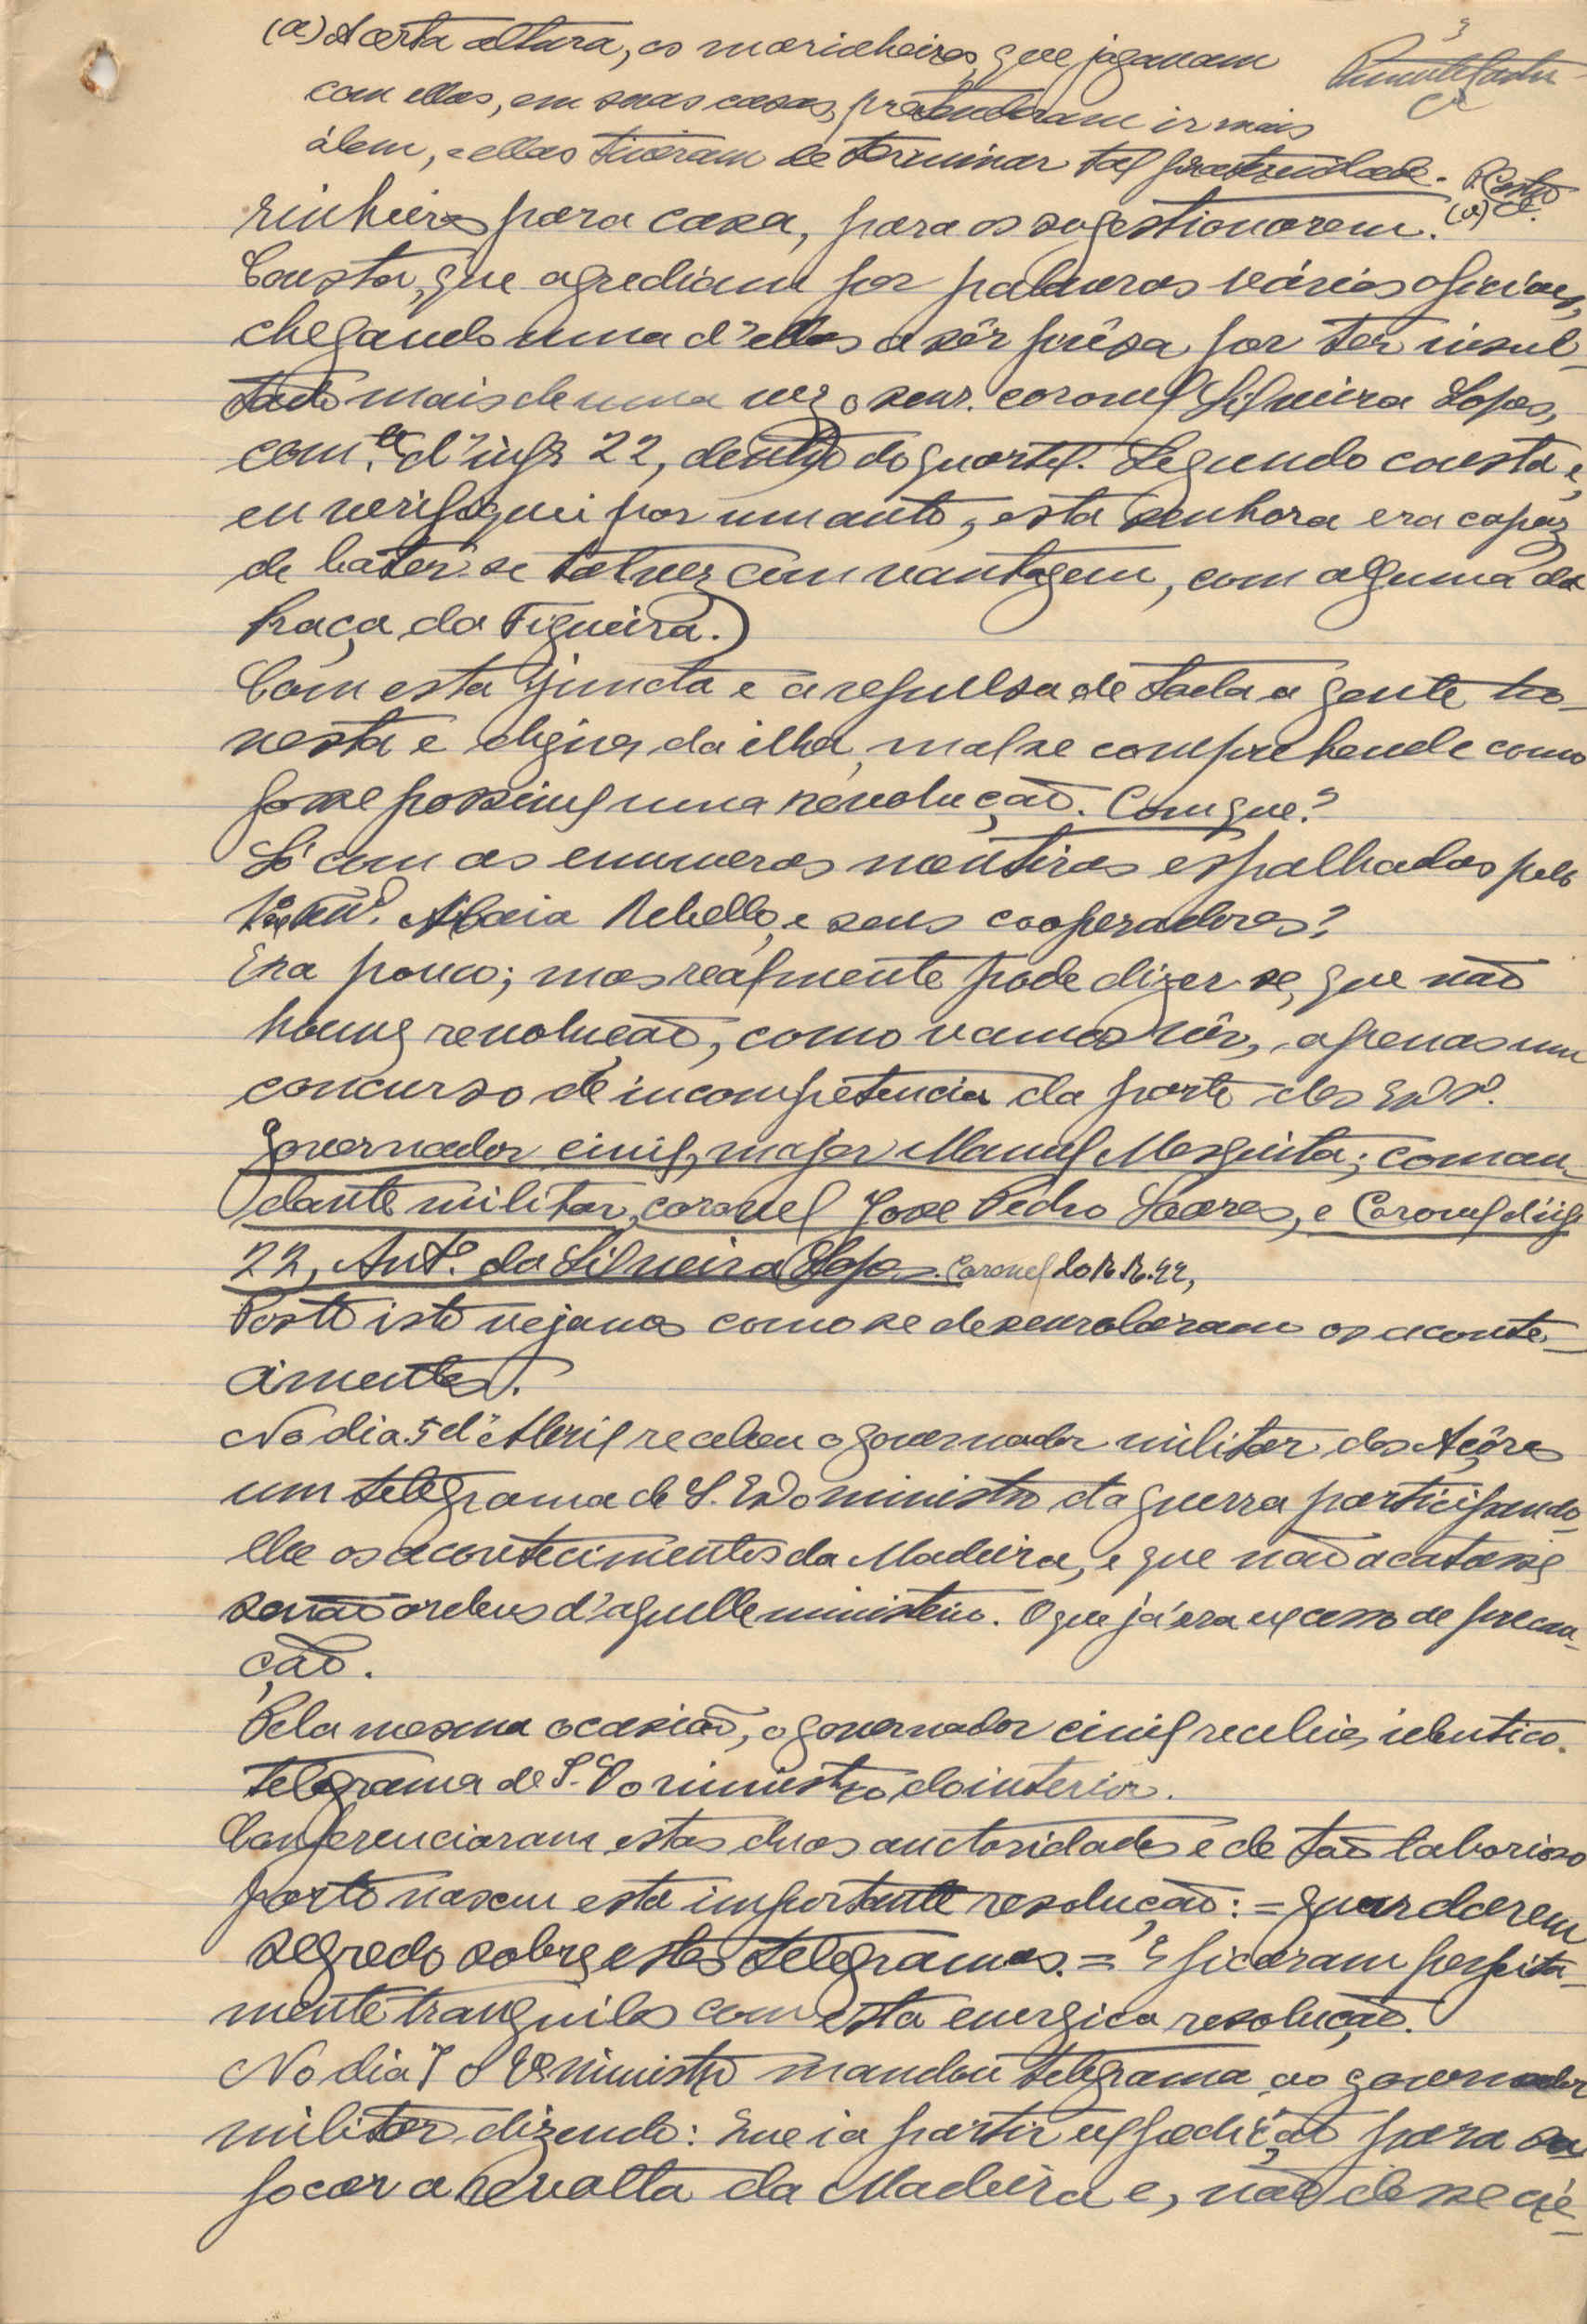 (a) A certa altura, os marinheiros, que jogavam
com ellas, em suas casas, pretenderam ir mais
álem, e ellas tiveram de terminar tal fraternidade.
3
rinheiros para casa, para os sugestionarem. (a)
Consta, que agrediam por palavras vários oficiaes,
chegando uma d'ellas a sêr prêsa por ter insul-
tado mais de uma vez o senr. coronel Silveira Lopes,
com.te d'inf.a 22, dentro do quartel. Segundo consta e,
eu verifiquei por um auto, esta senhora era capaz
de batêr-se talvez com vantagem, com alguma da
Praça da Figueira.)
Com esta Juncta e a repulsa de toda a gente ho-
nesta e digna da ilha, mal se comprehende como
fosse possivel uma revolução. Com que?
Só com as enumeras mentiras espalhadas pelo
Maia Rebello, e seus cooperadores?
Era pouco; mas realmente pode dizer-se, que não
houve revolução, como vamos vêr, apenas um
concurso de incompetencia da parte dos
governador civil, major Manuel Mesquita; coman-
dante militar, coronel José Pedro Soares, e Coronel d'inf.a
22, Ant.o da Silveira Lopes. Coronel do R. R. 22,
Posto isto vejamos como se desenrolaram os aconte-
cimentos.
No dia 5 d'Abril recebeu o governador militar dos Açôres
um telegrama de S. Ex.a o ministro da guerra participando-
lhe os acontecimentos da Madeira, e que não acatasse
senão ordens d'aquelle ministerio. O que já era excesso de precau-
ção.
Pela mesma ocasião, o governador civil recebia identico
telegrama de S. Ex.a o ministro do interior.
Conferenciaram estas duas auctoridades e de tão laborioso
parto nasceu esta importante resolução: = guardarem
segredo sobre estes telegramas. = E ficaram perfeita-
mente tranquilos com esta energica resolução.
No dia 7 o Ex.o ministro mandou telegrama ao governador
militar dizendo: Que ia partir expedição para su-
focar a revolta da Madeira e, não désse cré-